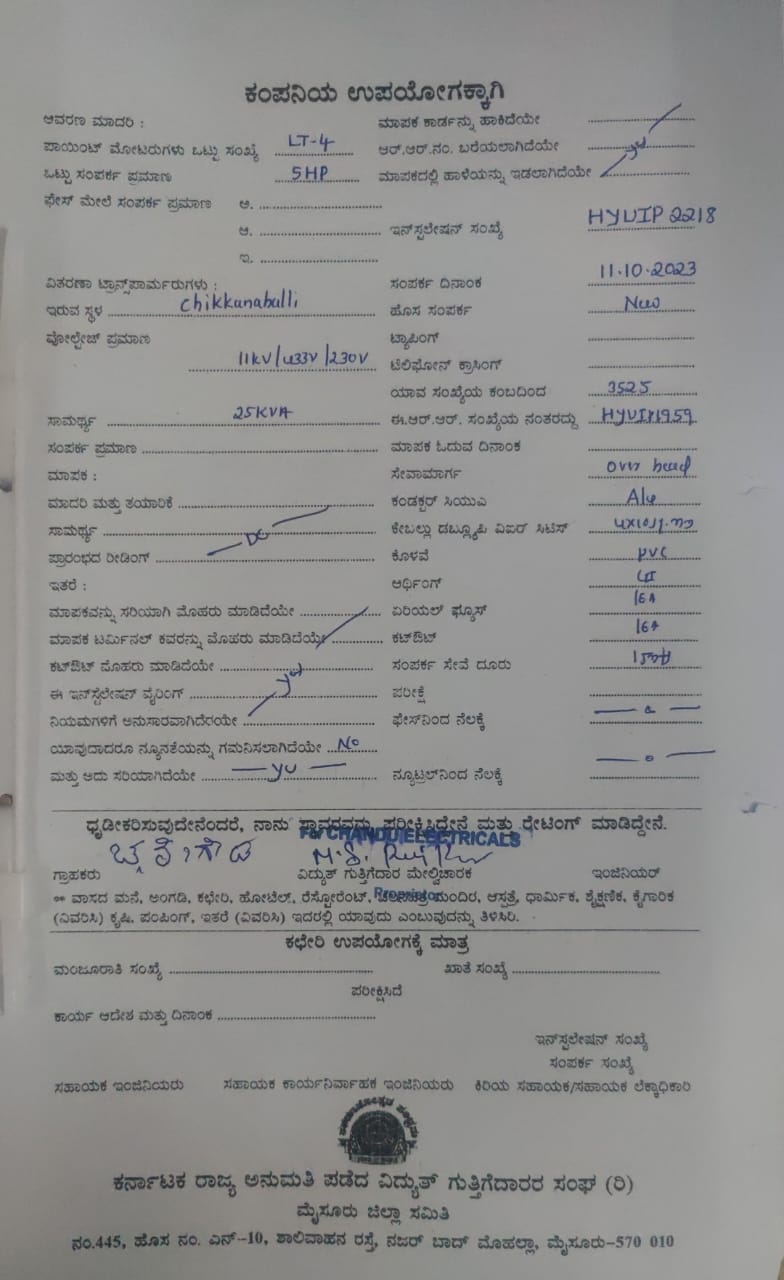 ಕಂಪನಿಯ ಉಪಯೋಗಕ್ಕಾಗಿ
ಆವರಣ ಮಾದರಿ : ಮಾಪಕ ಕಾರ್ಡನ್ನು ಹಾಕಿದೆಯೇ
ಪಾಯಿಂಟ್ ಮೋಟರುಗಳು ಒಟ್ಟು ಸಂಖ್ಯೆ LT-4 ಆರ್.ಆರ್.ನಂ. ಬರೆಯಲಾಗಿದೆಯೇ
ಒಟ್ಟು ಸಂಪರ್ಕ ಪ್ರಮಾಣ 5HP ಮಾಪಕದಲ್ಲಿ ಹಾಳೆಯನ್ನು ಇಡಲಾಗಿದೆಯೇ
ಫೇಸ್ ಮೇಲೆ ಸಂಪರ್ಕ ಪ್ರಮಾಣ ಅ.
ಆ. ಇನ್‌ಸ್ಟಲೇಷನ್ ಸಂಖ್ಯೆ HYUIP 2218
ಇ.
ವಿತರಣಾ ಟ್ರಾನ್ಸ್‌ಪಾರ್ಮರುಗಳು : ಸಂಪರ್ಕ ದಿನಾಂಕ 11.10.2023
ಇರುವ ಸ್ಥಳ Chikkanahalli ಹೊಸ ಸಂಪರ್ಕ New
ವೋಲ್ಟೇಜ್ ಪ್ರಮಾಣ ಟ್ಯಾಪಿಂಗ್
11KV/433V/230V ಟೆಲಿಫೋನ್ ಕ್ರಾಸಿಂಗ್
ಯಾವ ಸಂಖ್ಯೆಯ ಕಂಬದಿಂದ 3525
ಸಾಮರ್ಥ್ಯ 25KVA ಈ.ಆರ್.ಆರ್. ಸಂಖ್ಯೆಯ ನಂತರದ್ದು
ಸಂಪರ್ಕ ಪ್ರಮಾಣ ಮಾಪಕ ಓದುವ ದಿನಾಂಕ
ಮಾಪಕ : ಸೇವಾಮಾರ್ಗ Over head
ಮಾದರಿ ಮತ್ತು ತಯಾರಿಕೆ ಕಂಡಕ್ಟರ್ ಸಿಯುವಿ Alu
ಸಾಮರ್ಥ್ಯ ಕೇಬಲ್ಲು ಡಬ್ಲ್ಯೂಪಿ ವಿಐರ್ ಸಿಟಿಸ್
ಪ್ರಾರಂಭದ ರೀಡಿಂಗ್ DC ಕೊಳವೆ PVC
ಇತರೆ : ಆರ್ಥಿಂಗ್ GI
ಮಾಪಕವನ್ನು ಸರಿಯಾಗಿ ಮೊಹರು ಮಾಡಿದೆಯೇ ಏರಿಯಲ್ ಫ್ಯೂಸ್ 16A
ಮಾಪಕ ಟರ್ಮಿನಲ್ ಕವರನ್ನು ಮೊಹರು ಮಾಡಿದೆಯೇ ಕಟ್‌ಔಟ್ 16A
ಕಟ್‌ಔಟ್ ಮೊಹರು ಮಾಡಿದೆಯೇ ಸಂಪರ್ಕ ಸೇವೆ ದೂರು
ಈ ಇನ್‌ಸ್ಟಲೇಷನ್ ವೈರಿಂಗ್ ಪರೀಕ್ಷೆ
ನಿಯಮಗಳಿಗೆ ಅನುಸಾರವಾಗಿದೆರಯೇ ಫೇಸ್‌ನಿಂದ ನೆಲಕ್ಕೆ
ಯಾವುದಾದರೂ ನ್ಯೂನತೆಯನ್ನು ಗಮನಿಸಲಾಗಿದೆಯೇ No
ಮತ್ತು ಅದು ಸರಿಯಾಗಿದೆಯೇ ನ್ಯೂಟ್ರಲ್‌ನಿಂದ ನೆಲಕ್ಕೆ
ಧೃಡೀಕರಿಸುವುದೇನೆಂದರೆ, ನಾನು ಸ್ಥಾವರವನ್ನು ಪರೀಕ್ಷಿಸಿದ್ದೇನೆ ಮತ್ತು ರೇಟಿಂಗ್ ಮಾಡಿದ್ದೇನೆ.
For CHANDU ELECTRICALS
ಗ್ರಾಹಕರು ವಿದ್ಯುತ್ ಗುತ್ತಿಗೆದಾರ ಮೇಲ್ವಿಚಾರಕ ಇಂಜಿನಿಯರ್
Proprietor
** ವಾಸದ ಮನೆ, ಅಂಗಡಿ, ಕಛೇರಿ, ಹೋಟೆಲ್, ರೆಸ್ಟೋರೆಂಟ್, ಚಲನಚಿತ್ರ ಮಂದಿರ, ಆಸ್ಪತ್ರೆ, ಧಾರ್ಮಿಕ, ಶೈಕ್ಷಣಿಕ, ಕೈಗಾರಿಕ
(ವಿವರಿಸಿ) ಕೃಷಿ, ಪಂಪಿಂಗ್, ಇತರೆ (ವಿವರಿಸಿ) ಇದರಲ್ಲಿ ಯಾವುದು ಎಂಬುವುದನ್ನು ತಿಳಿಸಿರಿ.
ಕಛೇರಿ ಉಪಯೋಗಕ್ಕೆ ಮಾತ್ರ
ಮಂಜೂರಾತಿ ಸಂಖ್ಯೆ ಖಾತೆ ಸಂಖ್ಯೆ
ಪರೀಕ್ಷಿಸಿದೆ
ಕಾರ್ಯ ಆದೇಶ ಮತ್ತು ದಿನಾಂಕ
ಇನ್‌ಸ್ಟಲೇಷನ್ ಸಂಖ್ಯೆ
ಸಂಪರ್ಕ ಸಂಖ್ಯೆ
ಸಹಾಯಕ ಇಂಜಿನಿಯರು ಸಹಾಯಕ ಕಾರ್ಯನಿರ್ವಾಹಕ ಇಂಜಿನಿಯರು ಕಿರಿಯ ಸಹಾಯಕ/ಸಹಾಯಕ ಲೆಕ್ಕಾಧಿಕಾರಿ
ಕರ್ನಾಟಕ ರಾಜ್ಯ ಅನುಮತಿ ಪಡೆದ ವಿದ್ಯುತ್ ಗುತ್ತಿಗೆದಾರರ ಸಂಘ (ರಿ)
ಮೈಸೂರು ಜಿಲ್ಲಾ ಸಮಿತಿ
ನಂ.445, ಹೊಸ ನಂ. ಎನ್-10, ಶಾಲಿವಾಹನ ರಸ್ತೆ, ನಜರ್ ಬಾದ್ ಮೊಹಲ್ಲಾ, ಮೈಸೂರು-570 010